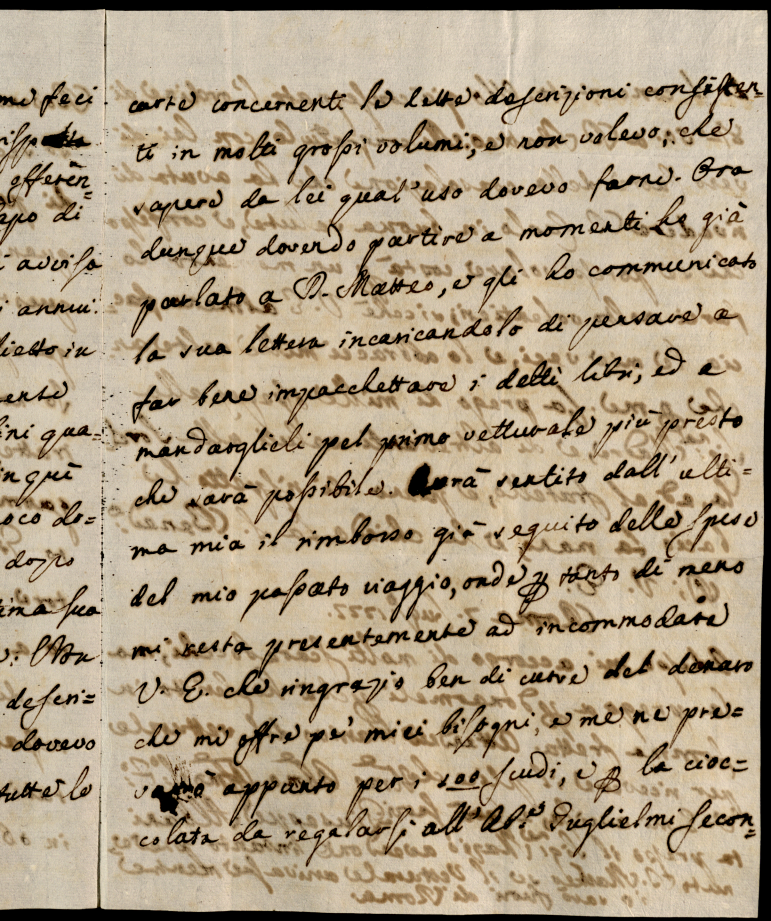 me feci
risp
efferen=
dapo di
i avvisa
i annui.
lietto in
mente
ini qua=
inqui
oco do=
dopo
ima sua
descri=
dovevo
tutte le
carte concernenti le dette descrizioni consisten=
ti in molti grossi volumi; e non volevo, che
sapere da lei qual' uso dovevo farne. Ora
dunque dovendo partire a momenti ho già
parlato a D. Matteo, e gli ho communicato
la sua lettera incaricandolo di pensare a
far bene impacchettare i detti libri, ed a
mandarglieli pel primo vetturale più presto
che sarà possibile. Avrà sentito dall' ulti=
ma mia il rimborso già seguito delle spese
del mio passato viaggio, onde ꝑ tanto di meno
mi resta presentemente ad incommodare
V. E. che ringrazio ben di cuore del denaro
che mi offre pe' miei bisogni, e me ne pre=
varrò appunto per i 100 scudi, e ꝑ la cioc=
colata da regalarsi all' Ab.e Guglielmi secon=